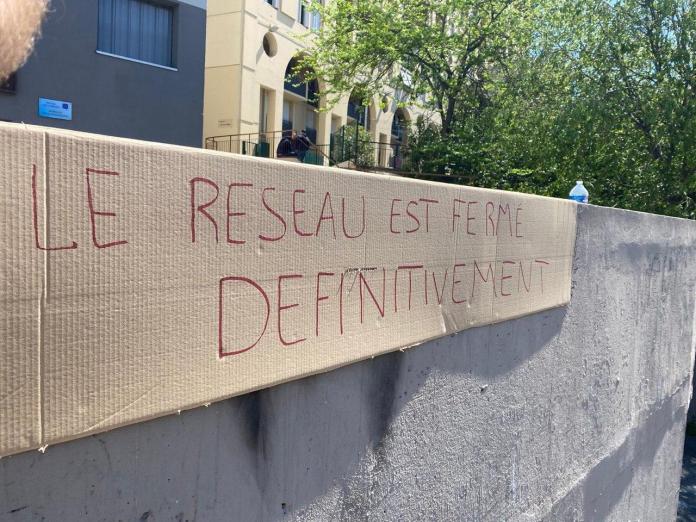 LE RESEAU EST FERMÉ
DEFINITIVEMENT